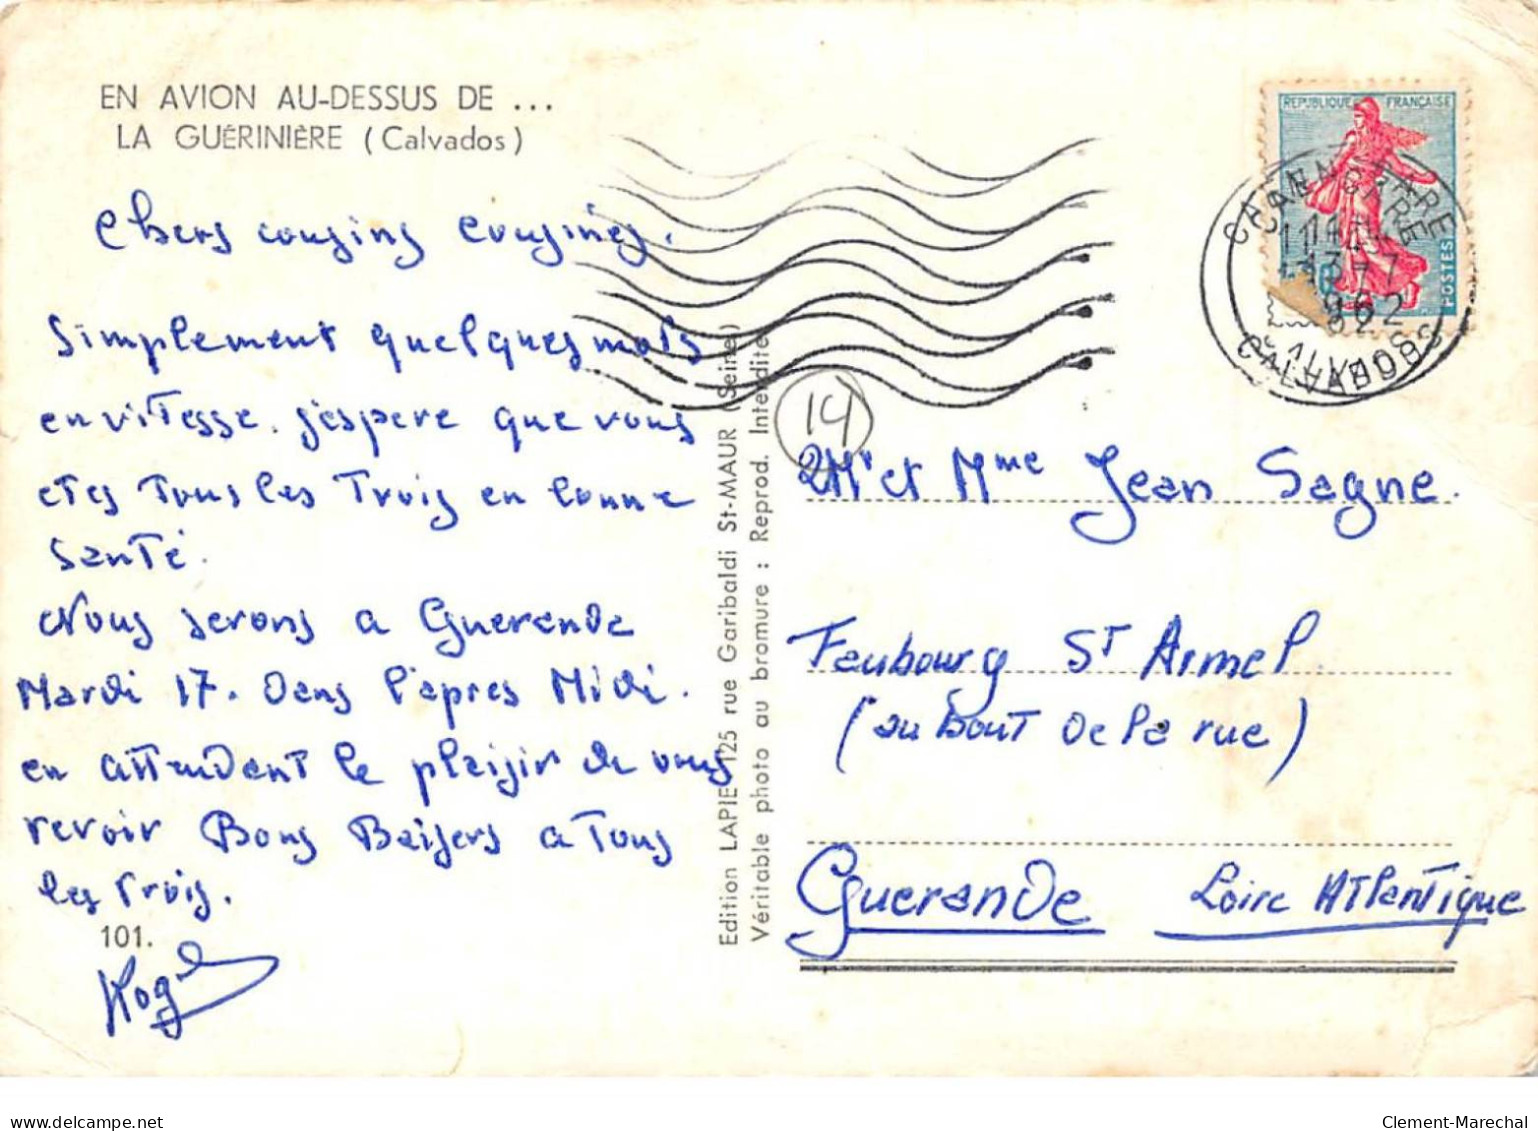 EN AVION AU-DESSUS DE ...
LA GUÉRINIÈRE (Calvados)
Chers cousins cousines.
Simplement quelques mots
en vitesse. j'espere que vous
etes Tous les Trois en bonne
santé.
Nous serons a Guerande
Mardi 17. Dans l'apres Midi.
en attendant le plaisir de vous
revoir Bons Baisers a Tous
les Trois.
101.
Edition LAPIE 125 rue Garibaldi St-MAUR (Seine)
Véritable photo au bromure : Reprod. Interdite
REPUBLIQUE FRANÇAISE
POSTES
CAEN GARE
13-7
1962
CALVADOS
14
Mr et Mme Jean Sagne.
Faubourg ST Armel
(au Bout de la rue)
Guerande Loire Atlantique
Clement-Marechal
delcampe.net